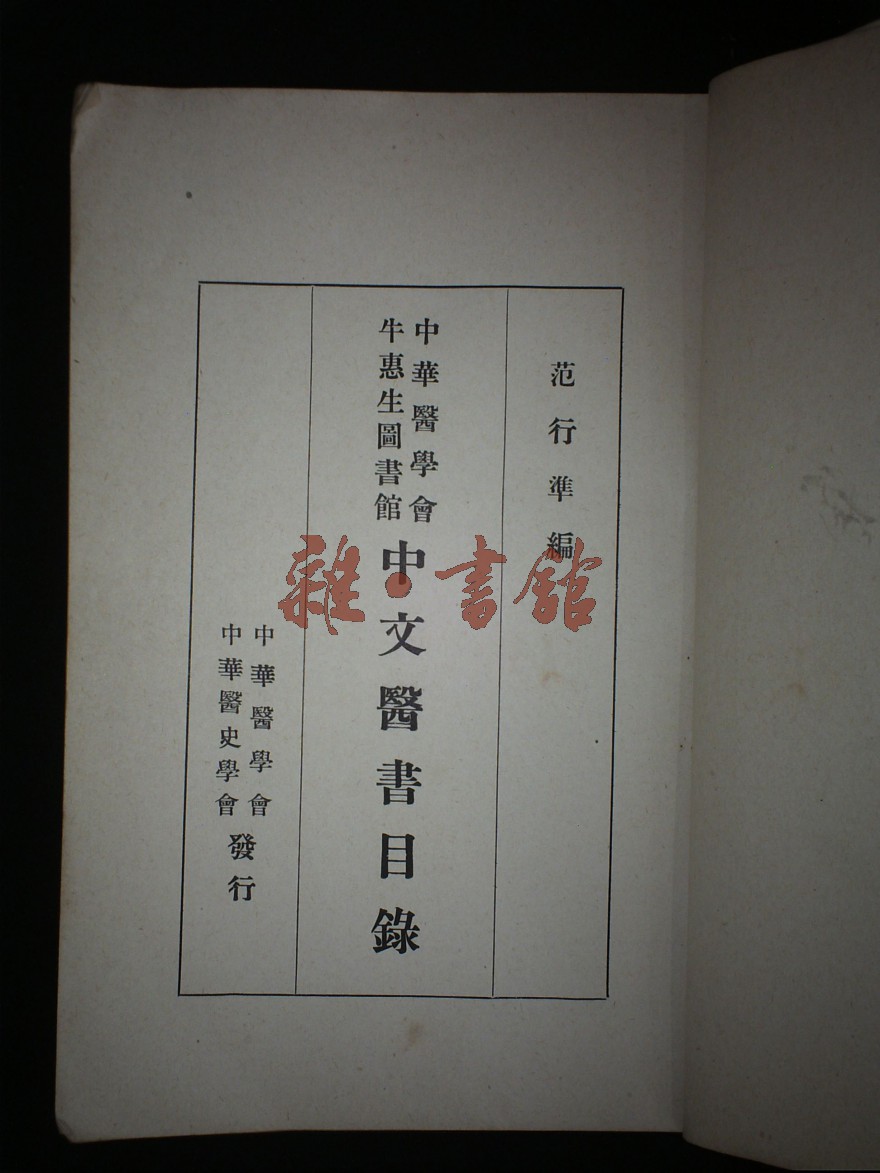 范行準編
中華醫學會
牛惠生圖書館
中文醫書目錄
中華醫學會
中華醫史學會
發行
雜·書館